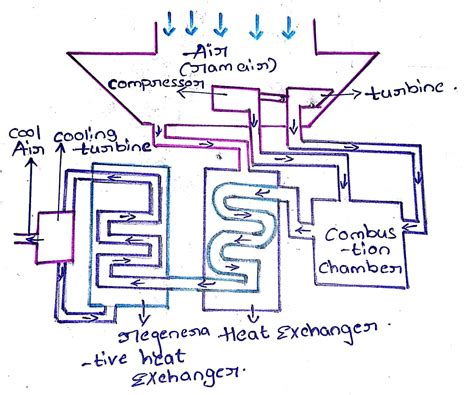 Air
(ramair)
compressor
turbine.
cool
Air
cooling
turbine
Combus
-tion
Chamber
regenera
-tive heat
Exchanger.
Heat Exchanger.